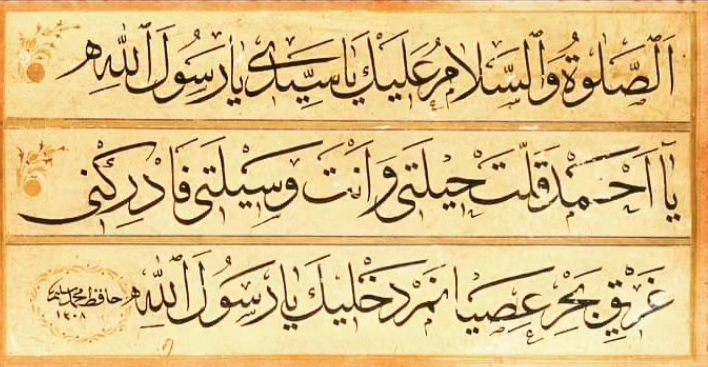 اَلصَّلٰوةُ وَالسَّلَامُ عَلَيْكَ يَا سَيِّدِى يَا رَسُولَ اللهِ
يَا اَحْمَدْ قَلَّتْ حِيلَتِى وَاَنْتَ وَسِيلَتِى فَاَدْرِكْنِى
غَرِيقِ بَحْرِ عِصْيَانَمْ دَخِيلَكْ يَا رَسُولَ اللهِ
حافظ محمد ١٣٠٨